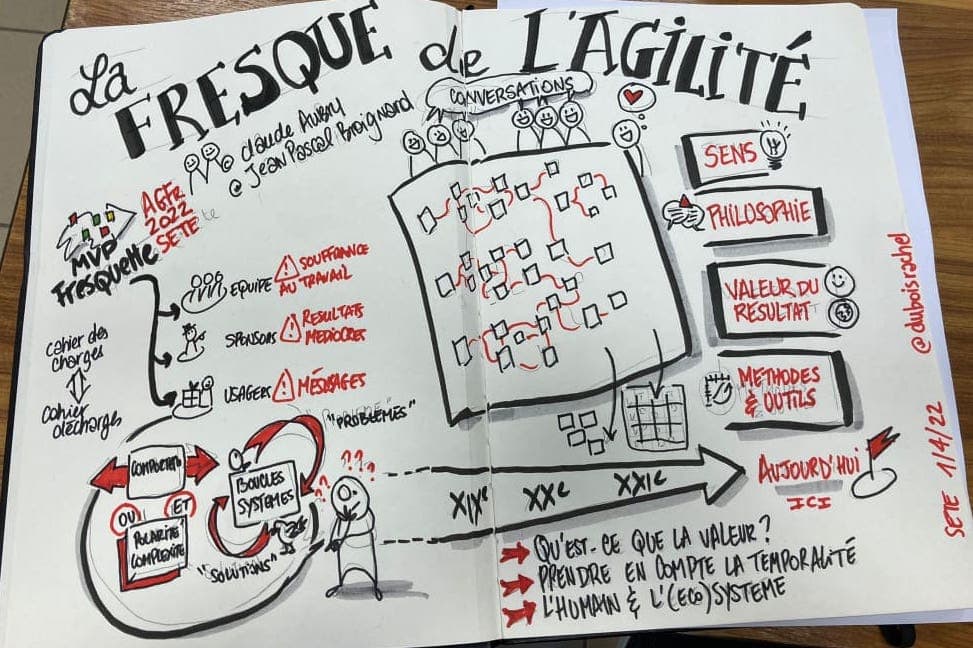 La
FRESQUE de L'AGILITÉ
CONVERSATIONS
Claude Aubry
@ Jean Pascal Boignard
AGFR
2022
SETE
MVP
Fresquette
EQUIPE
SOUFFRANCE
AU TRAVAIL
SPONSORS
RESULTATS
MEDIOCRES
USAGERS
MÉSUSAGES
cahier des
charges
cahier
décharges
"PROBLÈMES"
BOUCLES
SYSTEMES
OU
ET
POLARITÉ
COMPLEXITÉ
"SOLUTIONS"
???
SENS
PHILOSOPHIE
VALEUR DU
RESULTAT
METHODES
& OUTILS
XIXe
XXe
XXIe
AUJOURD'HUI
ICI
QU'EST-CE QUE LA VALEUR?
PRENDRE EN COMPTE LA TEMPORALITÉ
L'HUMAIN & L'(ECO)SYSTEME
@duboisrachel
SETE 1/4/22